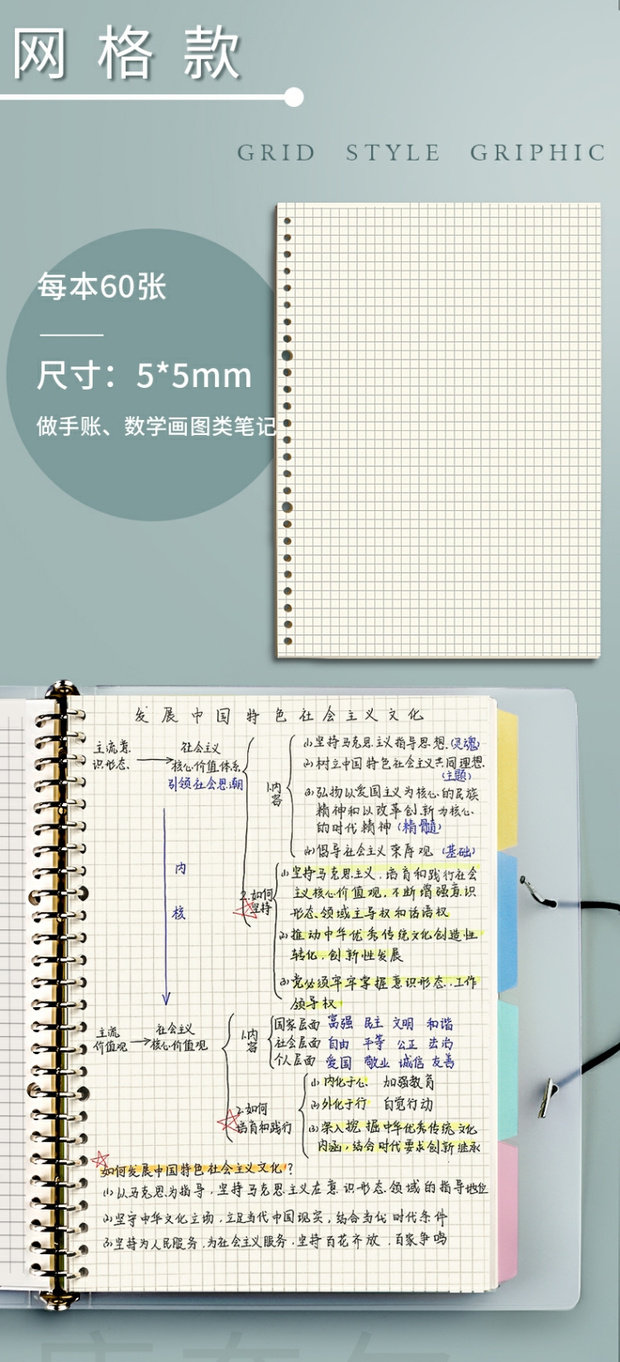 网格款
GRID STYLE GRIPHIC
每本60张
尺寸：5*5mm
做手账、数学画图类笔记
发展中国特色社会主义文化
主流意识形态
社会主义
核心价值体系
引领社会思潮
内核
1.内容
(1)坚持马克思主义指导思想(灵魂)
(2)树立中国特色社会主义共同理想
(主题)
(3)弘扬以爱国主义为核心的民族
精神和以改革创新为核心
的时代精神(精髓)
(4)倡导社会主义荣辱观(基础)
2.如何坚持
(1)坚持马克思主义，培育和践行社会
主义核心价值观，不断增强意识
形态领域主导权和话语权
(2)推动中华优秀传统文化创造性
转化，创新性发展
(3)党必须牢牢掌握意识形态工作
领导权
主流价值观
社会主义
核心价值观
1.内容
国家层面 富强 民主 文明 和谐
社会层面 自由 平等 公正 法治
个人层面 爱国 敬业 诚信 友善
2.如何
培育和践行
(1)内化于心 加强教育
(2)外化于行 自觉行动
(3)深入挖掘中华优秀传统文化
内涵，结合时代要求创新继承
如何发展中国特色社会主义文化？
(1)以马克思为指导，坚持马克思主义在意识形态领域的指导地位
(2)坚守中华文化立场，立足当代中国现实，结合当代时代条件
(3)坚持为人民服务，为社会主义服务，坚持百花齐放，百家争鸣